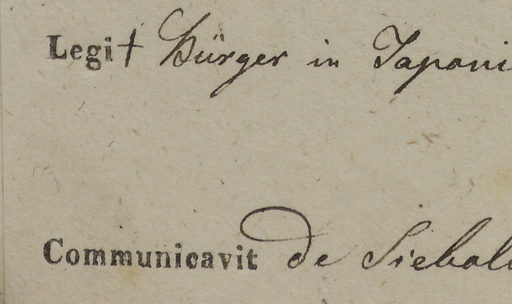 Legit Bürger in Japoni
Communicavit de Siebol